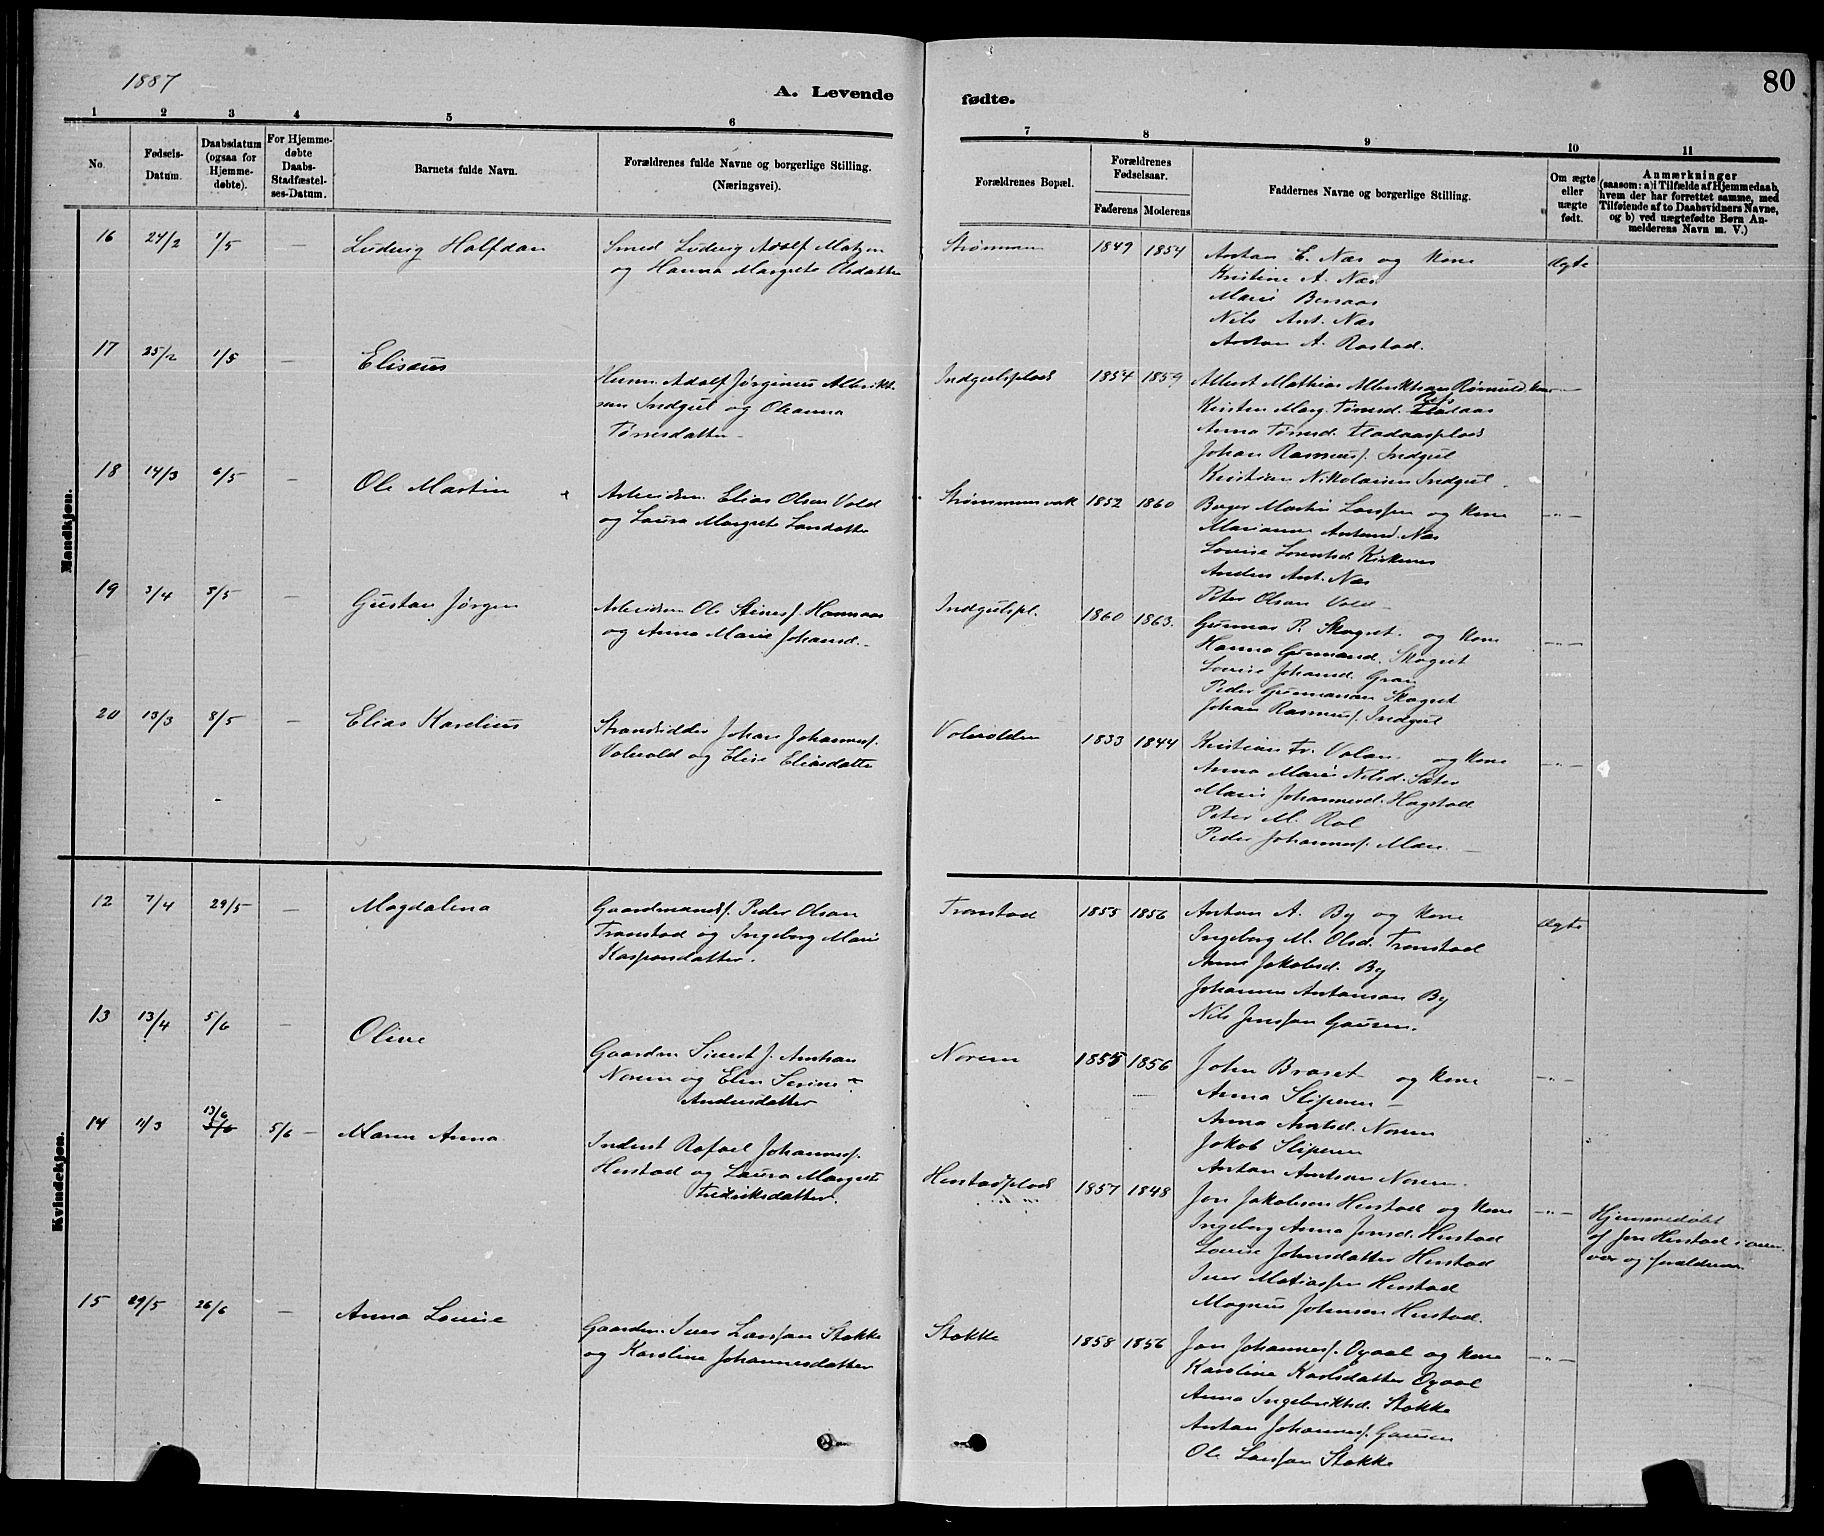 1887
80
A. Levende
fødte.
1 2 3 4 5 6 7 8 9 10 11
No.
Fødsels-Datum.
Daabsdatum (ogsaa for Hjemme-døbte).
For Hjemme-døbte Daabs-Stadfæstel-ses-Datum.
Barnets fulde Navn.
Forældrenes fulde Navne og borgerlige Stilling.
(Næringsvei).
Forældrenes Bopæl.
Forældrenes Fødselsaar.
Faderens Moderens
Faddernes Navne og borgerlige Stilling.
Om ægte eller uægte født.
Anmærkninger
(saasom: a) i Tilfælde af Hjemmedaab, hvem der har forrettet samme, med Tilføiende af to Daabsvidners Navne, og b) ved uægtefødte Børn An-melderens Navn m. V.)
Mandkjøn.
16 24/2 1/5 — Ludvig Halfdan
Smed Ludvig Adolf Matzen
og Hanna Margrete Olsdatter
Strømmen 1849 1854
Anton E. Næs og Kone
Kristine A. Næs
Marie Benaas
Nils Ant. Næs
Anton A. Rostad.
Ægte
17 25/2 1/5 — Elisæus
Husm. Adolf Jørginus Albrikt-
sen Indgul og Ohanna
Tørresdatter
Indgulsplads 1854 1859
Albert Mathias Albriktsen Rømuld Kone
Kirsten Marg. Tørresd.
Anna Tørresd. Fladaasplads
Johan Rasmus. Indgul
Kristian Nikolaisen Indgul.
18 14/3 6/5 — Ole Martin
Arbeidsm. Elias Olsen Vold
og Laura Margrete Larsdatter
1852 1860
Martin Larssen og Kone
Marianne Antond. Næs
Lovise Lorntsd. Kirknes
Anders Ant. Næs
Peter Olsen Vold
—"—
19 3/4 8/5 — Gustav Jørgen
Arbeidsm. Ole Steners. Hamnaas
og Anna Marie Johansd.
Indgulspl. 1860 1863.
Gunnar P. Skogset og Kone
Hanna Gunnarsd. Skogset
Lovise Johansd. Gran
Peder Gunnarsen Skogset
Johan Rasmus. Indgul
—"—
20 13/3 8/5 — Elias Karelius
Strandsidder Johan Johanness.
Volvold og Elise Eliasdatter
Volvolden 1833 1844
Kristian Fr. Volan og Kone
Anna Marie Nilsd. Sæter
Marie Johannesd. Hagstad
Peter M. Rol
Peder Johanness. Mære
—"—
Kvindekjøn.
12 7/4 29/5 — Magdalena
Gaardmands. Peder Olsen
Tronstad og Ingeborg Marie
Kaspersdatter.
Tronstad 1855 1856
Anton A. By og Kone
Ingeborg M. Olsd. Tronstad
Anne Jakobsd. By
Johannes Antonsen By
Nils Jenssen Gausen.
Ægte
13 13/4 5/6 — Olive
Gaardm. Sivert J. Arntsen
Norem og Elen Serine
Andersdatter
Norem 1855 1856
John Braset og Kone
Anna Sliperen
Anna Arntsd. Norem
Jakob Sliperen
Anton Arntsen Norem
—"—
14 11/3 13/6 5/6 5/6 — Maren Anna
Inderst Rafael Johanness.
Herstad og Laura Margrete
Fredriksdatter.
Herstadplads 1857 1848
Jon Jakobsen Herstad og Kone
Ingeborg Anna Jonsd. Herstad
Lovise Johnsdatter Herstad
Iver Matiassen Herstad
Magnus Johnsen Herstad.
—"—
Hjemmedøbt
af Jon Herstad i over
vær og forældrene
15 29/5 26/6 — Anna Lovise
Gaardm. Iver Larssen Stokke
og Karoline Johannesdatter
Stokke 1858 1856
Jon Johanness. Oxaal og Kone
Karoline Karlsdatter Oxaal
Anna Ingebriktsd. Stokke
Anton Johanness. Gausen
Ole Larssen Stokke
—"—